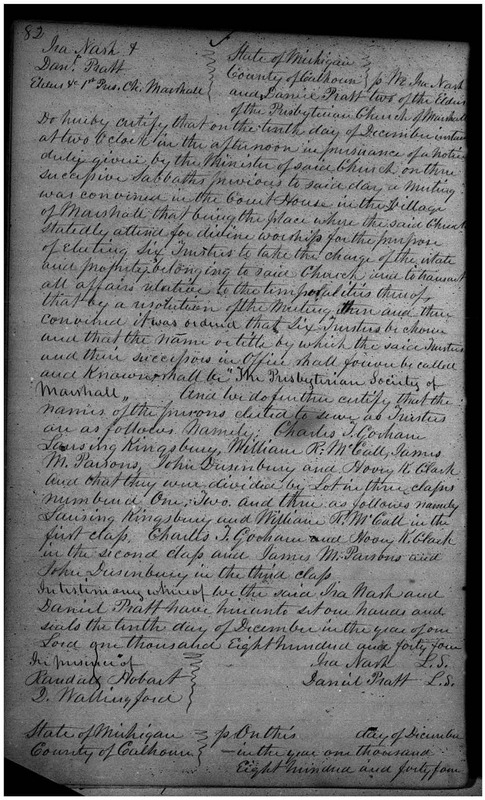 82
Ira Nash &
Danl. Pratt
Elders &c 1st Pres. Ch. Marshall
State of Michigan
County of Calhoun } ss We Ira Nash
and Daniel Pratt two of the Elders
of the Presbyterian Church of Marshall
Do hereby certify that on the tenth day of December instant
at two O'clock in the afternoon in pursuance of a notice
duly given by the Minister of said Church on three
successive Sabbaths previous to said day a Meeting
was convened in the Court House in the Village
of Marshall that being the place where the said Church
statedly attend for divine worship for the purpose
of electing Six Trustees to take the charge of the estate
and property belonging to said Church and to transact
all affairs relative to the temporalities thereof,
that by a resolution of the Meeting then and there
convened it was ordered that Six Trustees be chosen
and that the name or title by which the said Trustees
and their successors in Office shall forever be called
and Known shall be "The Presbyterian Society of
Marshall" And we do further certify that the
names of the persons elected to serve as Trustees
are as follows. Namely: Charles T. Gorham
Lansing Kingsbury, William R. McCall, James
M. Parsons, John Dusenbury and Hovey K. Clark
and that they were divided by Lot in three classes
numbered One, Two. and three as follows namely
Lansing Kingsbury and William R. McCall in the
first class, Charles T. Gorham and Hovey K. Clark
in the second class and James M. Parsons and
John Dusenbury in the third class
In testimony whereof we the said Ira Nash and
Daniel Pratt have hereunto set our hands and
seals the tenth day of December in the year of our
Lord one thousand Eight hundred and forty four
In presence of
Randall Hobart
D. Wallingford
Ira Nash L.S.
Daniel Pratt L.S.
State of Michigan
County of Calhoun } ss On this day of December
in the year one thousand
Eight hundred and forty four